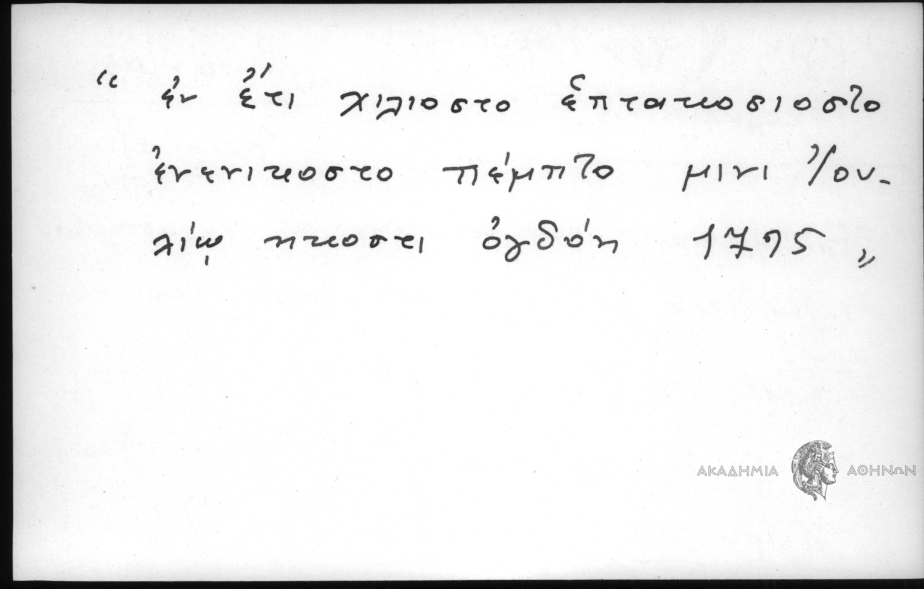 “ ἐν ἔτι χιλιοστο ἑπτακοσιοστο
ἐνενικοστο πέμπτο μινὶ Ἰου-
λίῳ ηκοστι ὀγδόη 1795 „
ΑΚΑΔΗΜΙΑ ΑΘΗΝΩΝ